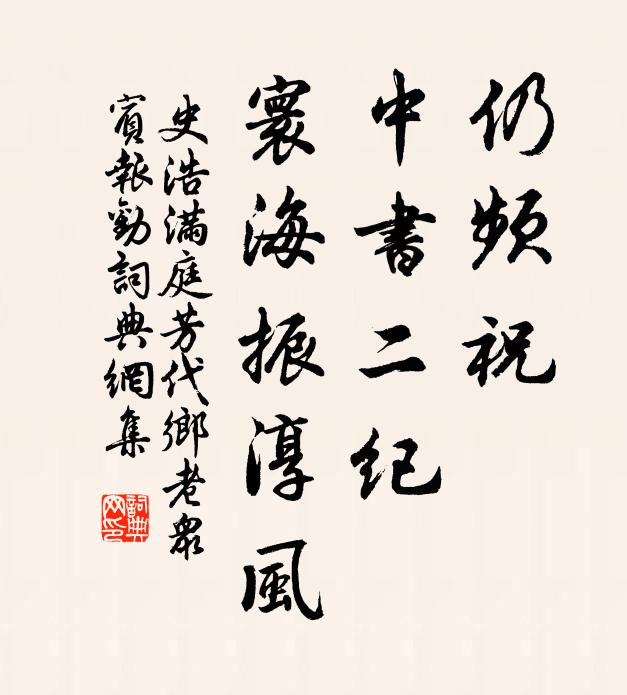 仍頻祝
中書二紀
寰海振淳風
史浩滿庭芳代鄉老眾
賓報勸詞典網集
詞典
網印